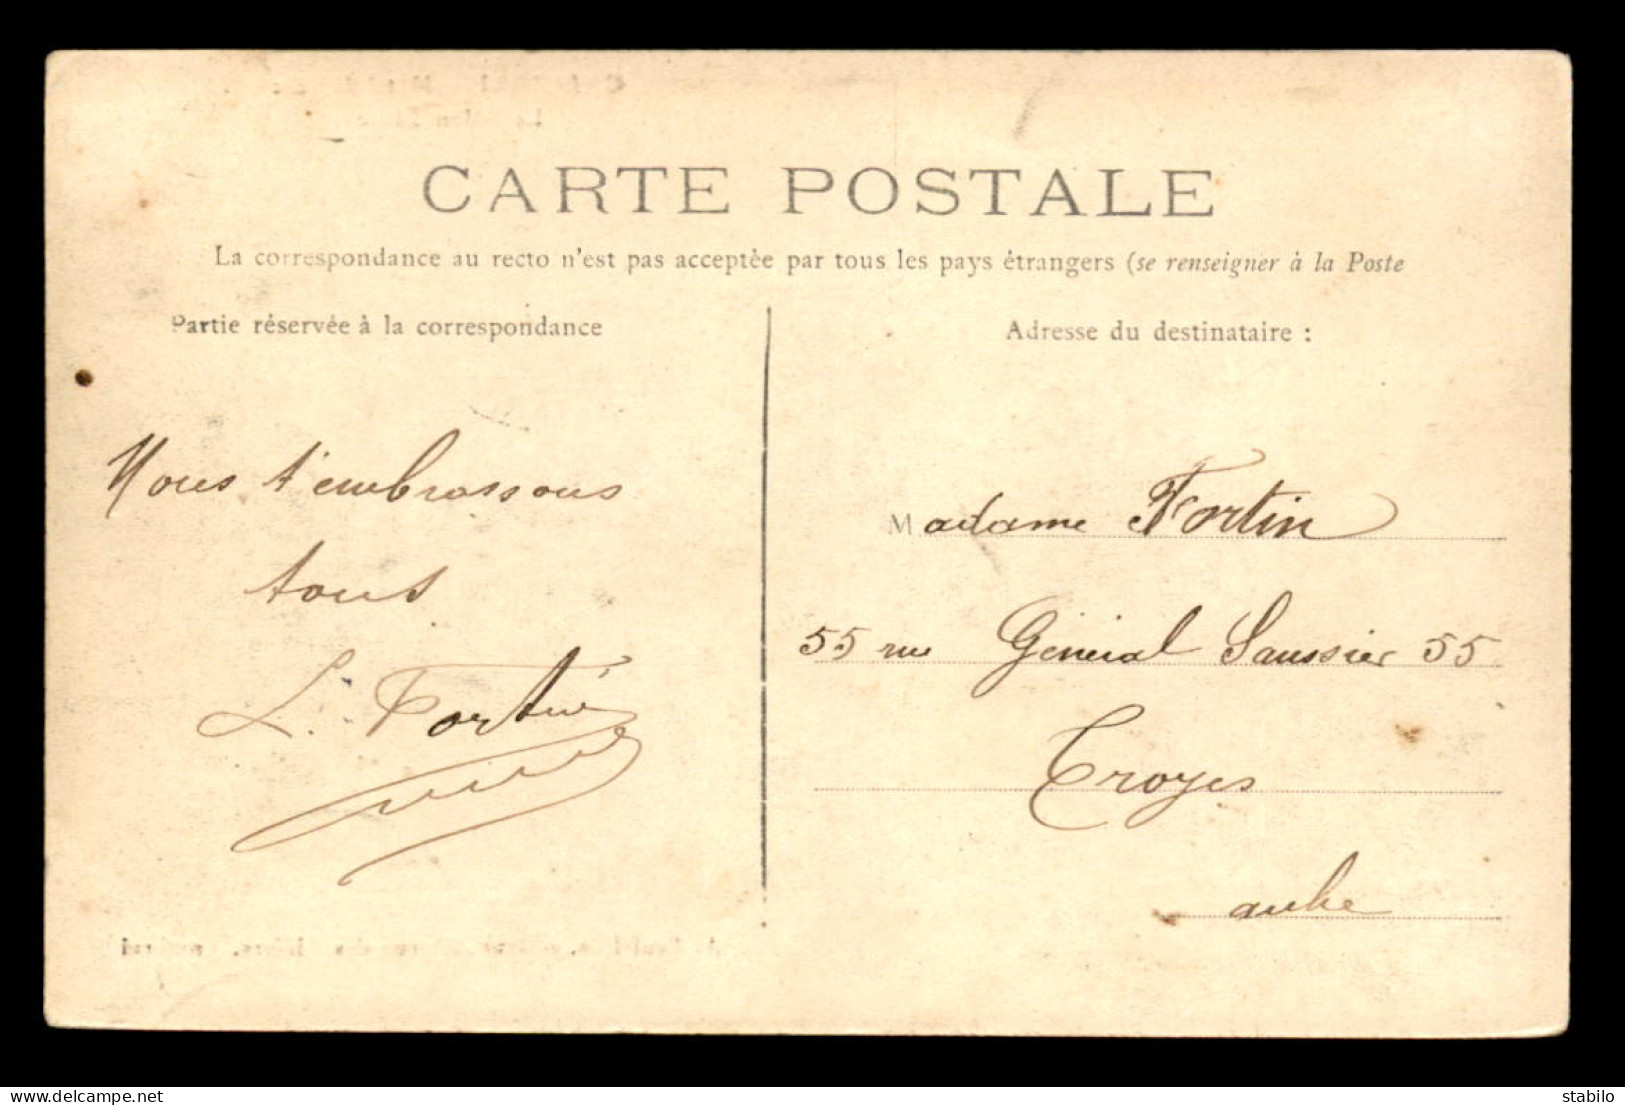 CARTE POSTALE
La correspondance au recto n'est pas acceptèe par tous les pays étrangers (se renseigner à la Poste
Partie réservée à la correspondance
Nous t'embrassons
tous
L. Fortin
Adresse du destinataire :
Madame Fortin
55 rue Général Saussier 55
Troyes
aube
www.delcampe.net
stabilo